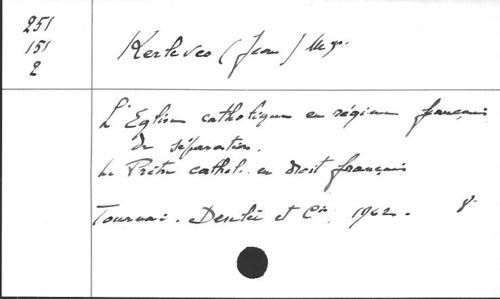 251
151
2
Kerlévéo (Jean) Mgr.
L'Eglise catholique en régime français
de séparation.
Le Prêtre cathol. en droit français
Tournai. Desclée et Cie. 1962. 8°